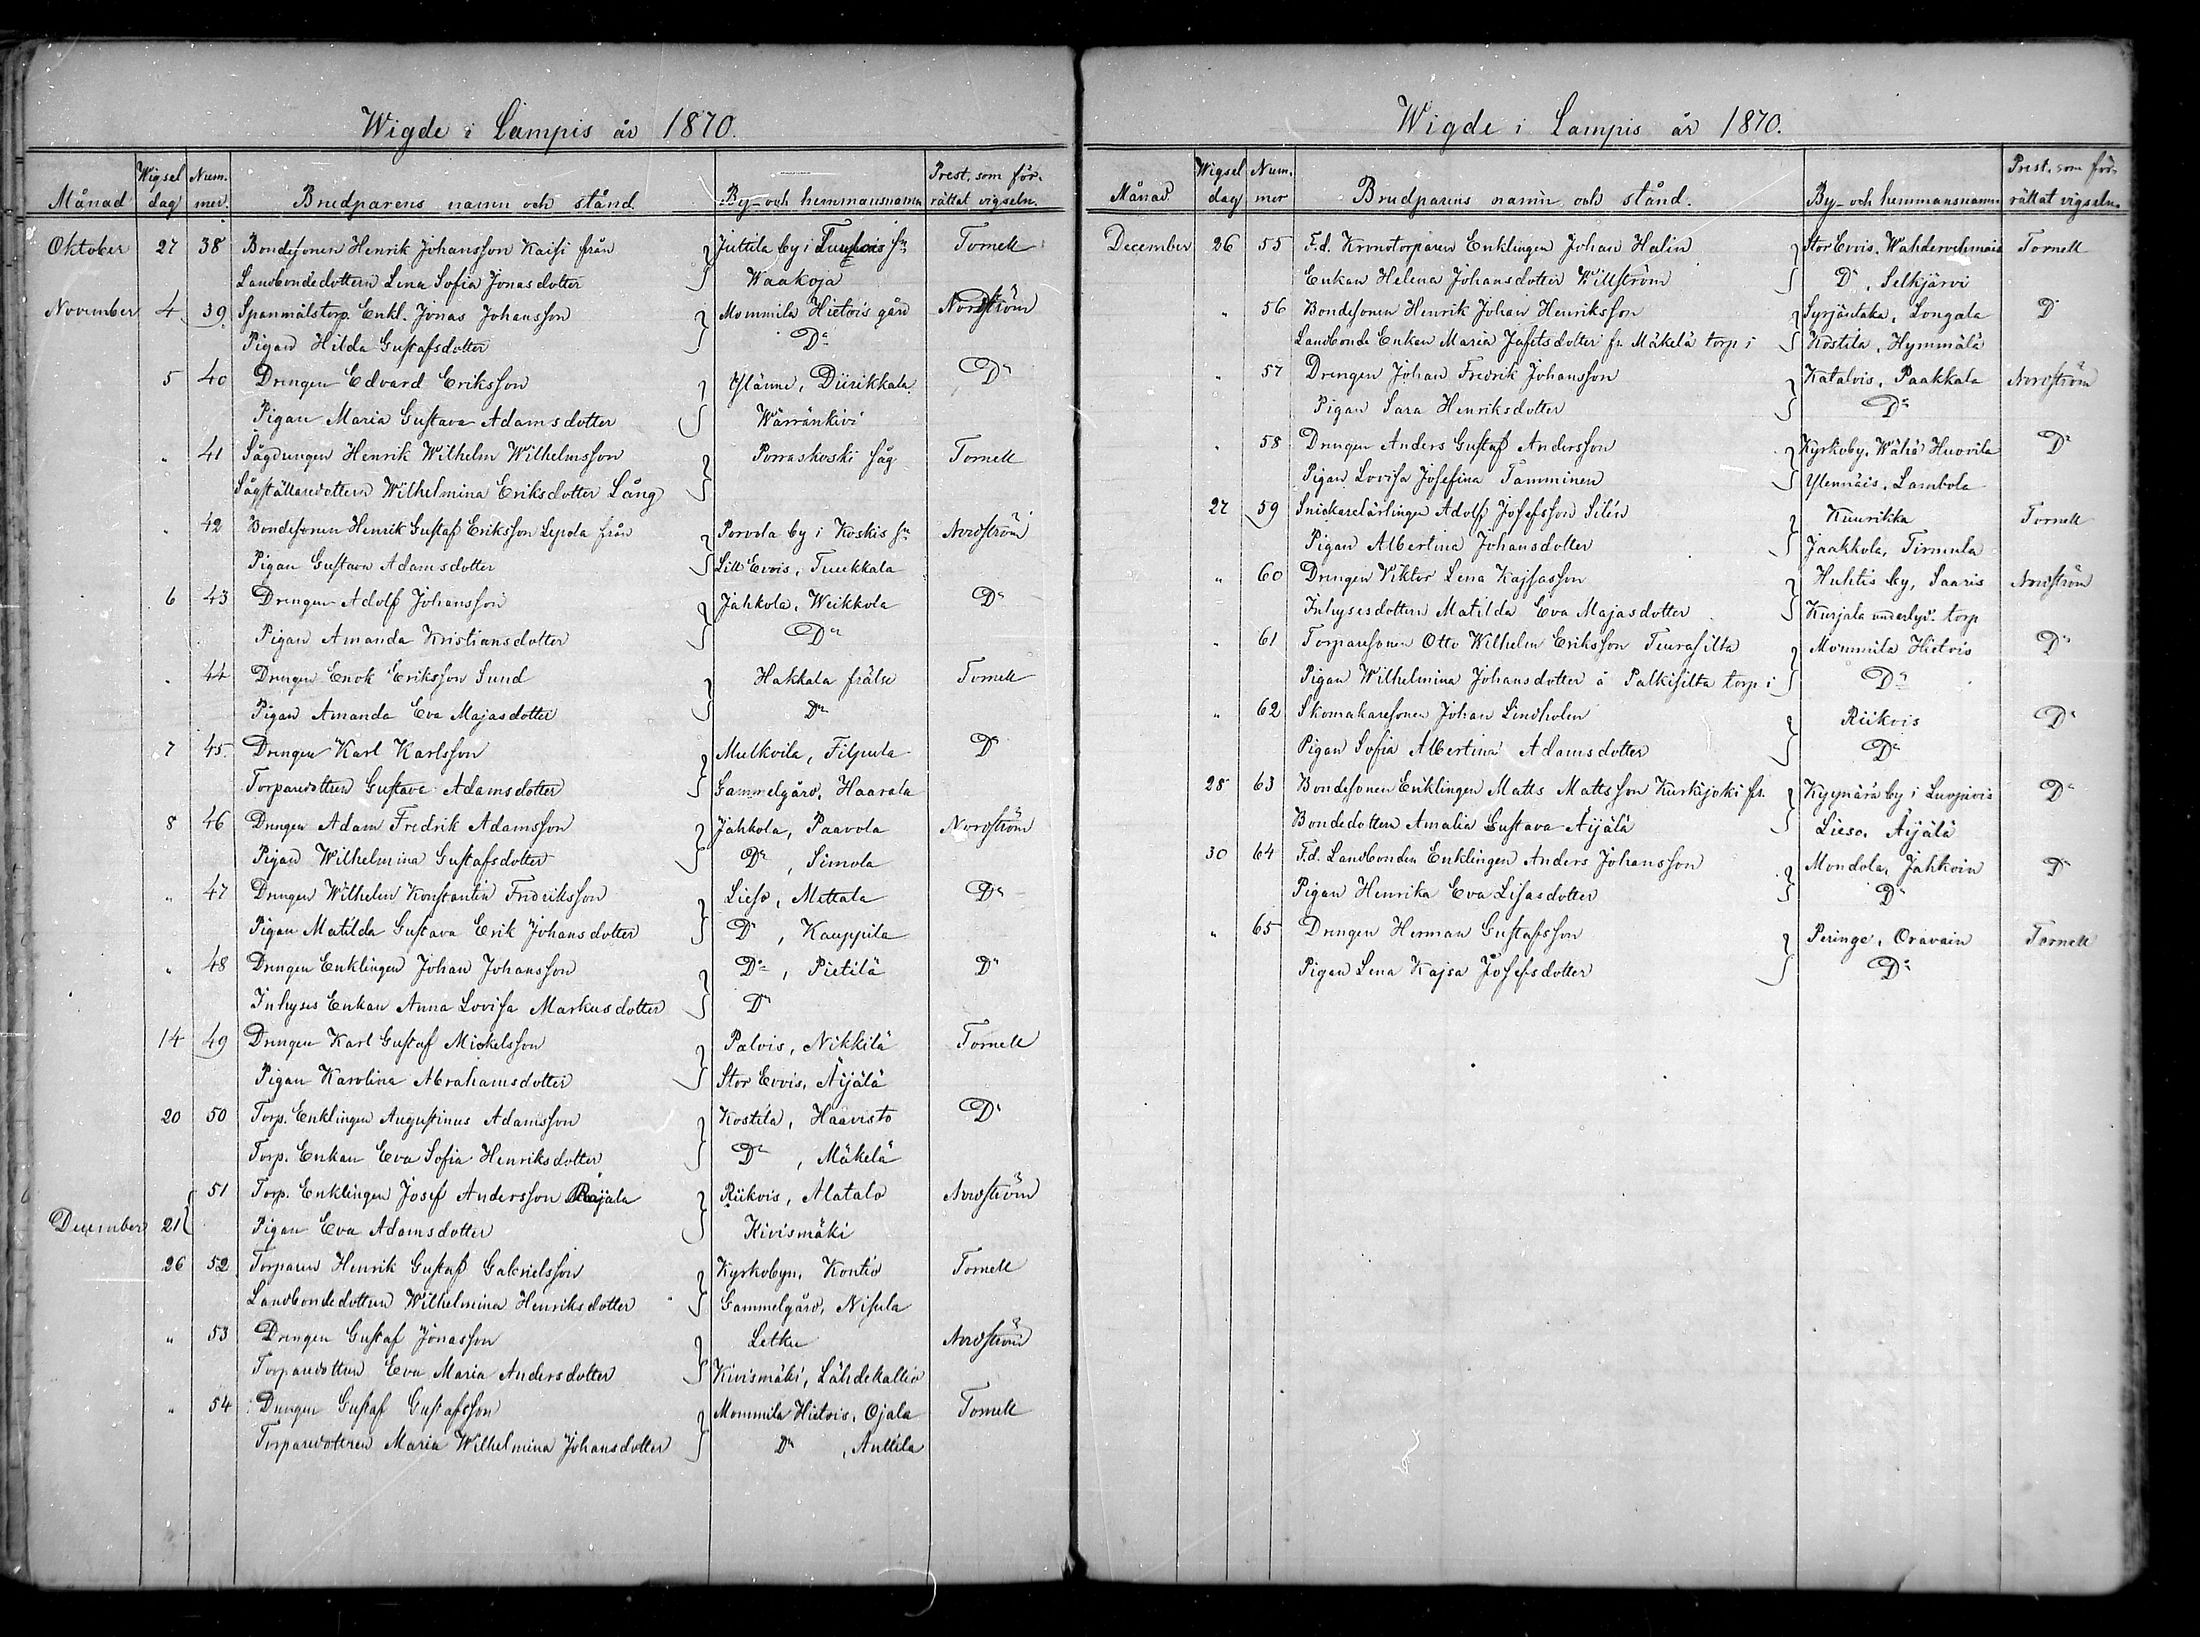 Wigde i Lampis år 1870.
Månad Wigsel dag Num. mer. Brudparens namn och stånd By- och hemmansnamn Prest, som för- rättat vigseln.
Oktober 27 38 Bondesonen Henrik Johansson Kaisi från Juttila by i Tuulois sn Tornell
Landbondedottern Lena Sofia Jonasdotter Waakoja
November 4 39 Spanmålstorp. Enkl. Jonas Johansson Mommila Hietois gård Nordström
Pigan Hilda Gustafsdotter Do
5 40 Drengen Edvard Eriksson Ylänne, Diirikkala Do
Pigan Maria Gustava Adamsdotter Wärränkivi
" 41 Sågdrengen Henrik Wilhelm Wilhelmsson Porraskoski såg Tornell
Sågställaredottern Wilhelmina Eriksdotter Lång
" 42 Bondesonen Henrik Gustaf Eriksson Lepola från Porvola by i Koskis sn Nordström
Pigan Gustava Adamsdotter Lill Evois, Tuukkala
6 43 Drengen Adolf Johansson Jahkola, Weikkola Do
Pigan Amanda Kristiansdotter Do
" 44 Drengen Enok Eriksson Sund Hakkala frälse Tornell
Pigan Amanda Eva Majasdotter Do
7 45 Drengen Karl Karlsson Mulkoila, Filpula Do
Torparedottren Gustava Adamsdotter Gammelgård, Haarala
8 46 Drengen Adam Fredrik Adamsson Jahkola, Paavola Nordström
Pigan Wilhelmina Gustafsdotter Do, Simola
" 47 Drengen Wilhelm Konstantin Fredriksson Lieso, Mettala Do
Pigan Matilda Gustava Erik Johansdotter Do, Kauppila
" 48 Drengen Enklingen Johan Johansson Do, Pietilä Do
Inhyses Enkan Anna Lovisa Markusdotter Do
14 49 Drengen Karl Gustaf Mickelsson Palois, Nikkilä Tornell
Pigan Karolina Abrahamsdotter Stor Evois, Äijälä
20 50 Torp. Enklingen Augustinus Adamsson Kostila, Haavisto Do
Torp. Enkan Eva Sofia Henriksdotter Do, Mäkelä
51 Torp. Enklingen Josef Andersson Rajala Riikois, Alatalo Nordström
December 21 Pigan Eva Adamsdotter Kivismäki
26 52 Torparen Henrik Gustaf Gabrielsson Kyrkobyn, Kontio Tornell
Landbondedottren Wilhelmina Henriksdotter Gammelgård, Nisula
" 53 Drengen Gustaf Jonasson Letku Nordström
Torparedottren Eva Maria Andersdotter Kivismäki, Lähdekallio
" 54 Drengen Gustaf Gustafsson Mommila Hietois, Ojala Tornell
Torparedottren Maria Wilhelmina Johansdotter Do, Anttila
Wigde i Lampis år 1870.
Månad Wigsel dag Num. mer Brudparens namn och stånd. By- och hemmansnamn Prest, som för- rättat vigseln.
December 26 55 F.d. Kronotorparen Enklingen Johan Halin Stor Evois, Wahdervehmais Tornell
Enkan Helena Johansdotter Willström Do, Selkjärvi
" 56 Bondesonen Henrik Johan Henriksson Syrjäntaka, Longala Do
Landbonde Enkan Maria Jafetsdotter fr. Mäkelä torp i Kostila, Hymmälä
" 57 Drengen Johan Fredrik Johansson Katalois, Paakkala Nordström
Pigan Sara Henriksdotter Do
" 58 Drengen Anders Gustaf Andersson Kyrkoby, Wähä Huovila Do
Pigan Lovisa Josefina Tamminen Ylennäis, Lambola
27 59 Snickarelärlingen Adolf Josefsson Silén Kuurikka Tornell
Pigan Albertina Johansdotter Jaakkola, Tirmula
" 60 Drengen Viktor Lena Kajsasson Huhtis by, Saaris Nordström
Inhysesdottern Matilda Eva Majasdotter Kurjala underlyd. torp
" 61 Torparesonen Otto Wilhelm Eriksson Teurasilta Mommila Hietois Do
Pigan Wilhelmina Johansdotter å Palkisilta torp i Do
" 62 Skomakaresonen Johan Lindholm Riikois Do
Pigan Sofia Albertina Adamsdotter Do
28 63 Bondesonen Enklingen Matts Mattsson Kurkijoki fr. Kyynärä by i Luopiois Do
Bondedottern Amalia Gustava Äijälä Lieso, Äijälä
30 64 F.d. Landbonden Enklingen Anders Johansson Mondola, Jahkoin Do
Pigan Henrika Eva Lisasdotter Do
" 65 Drengen Herman Gustafsson Peringe, Oravain Tornell
Pigan Lena Kajsa Josefsdotter Do